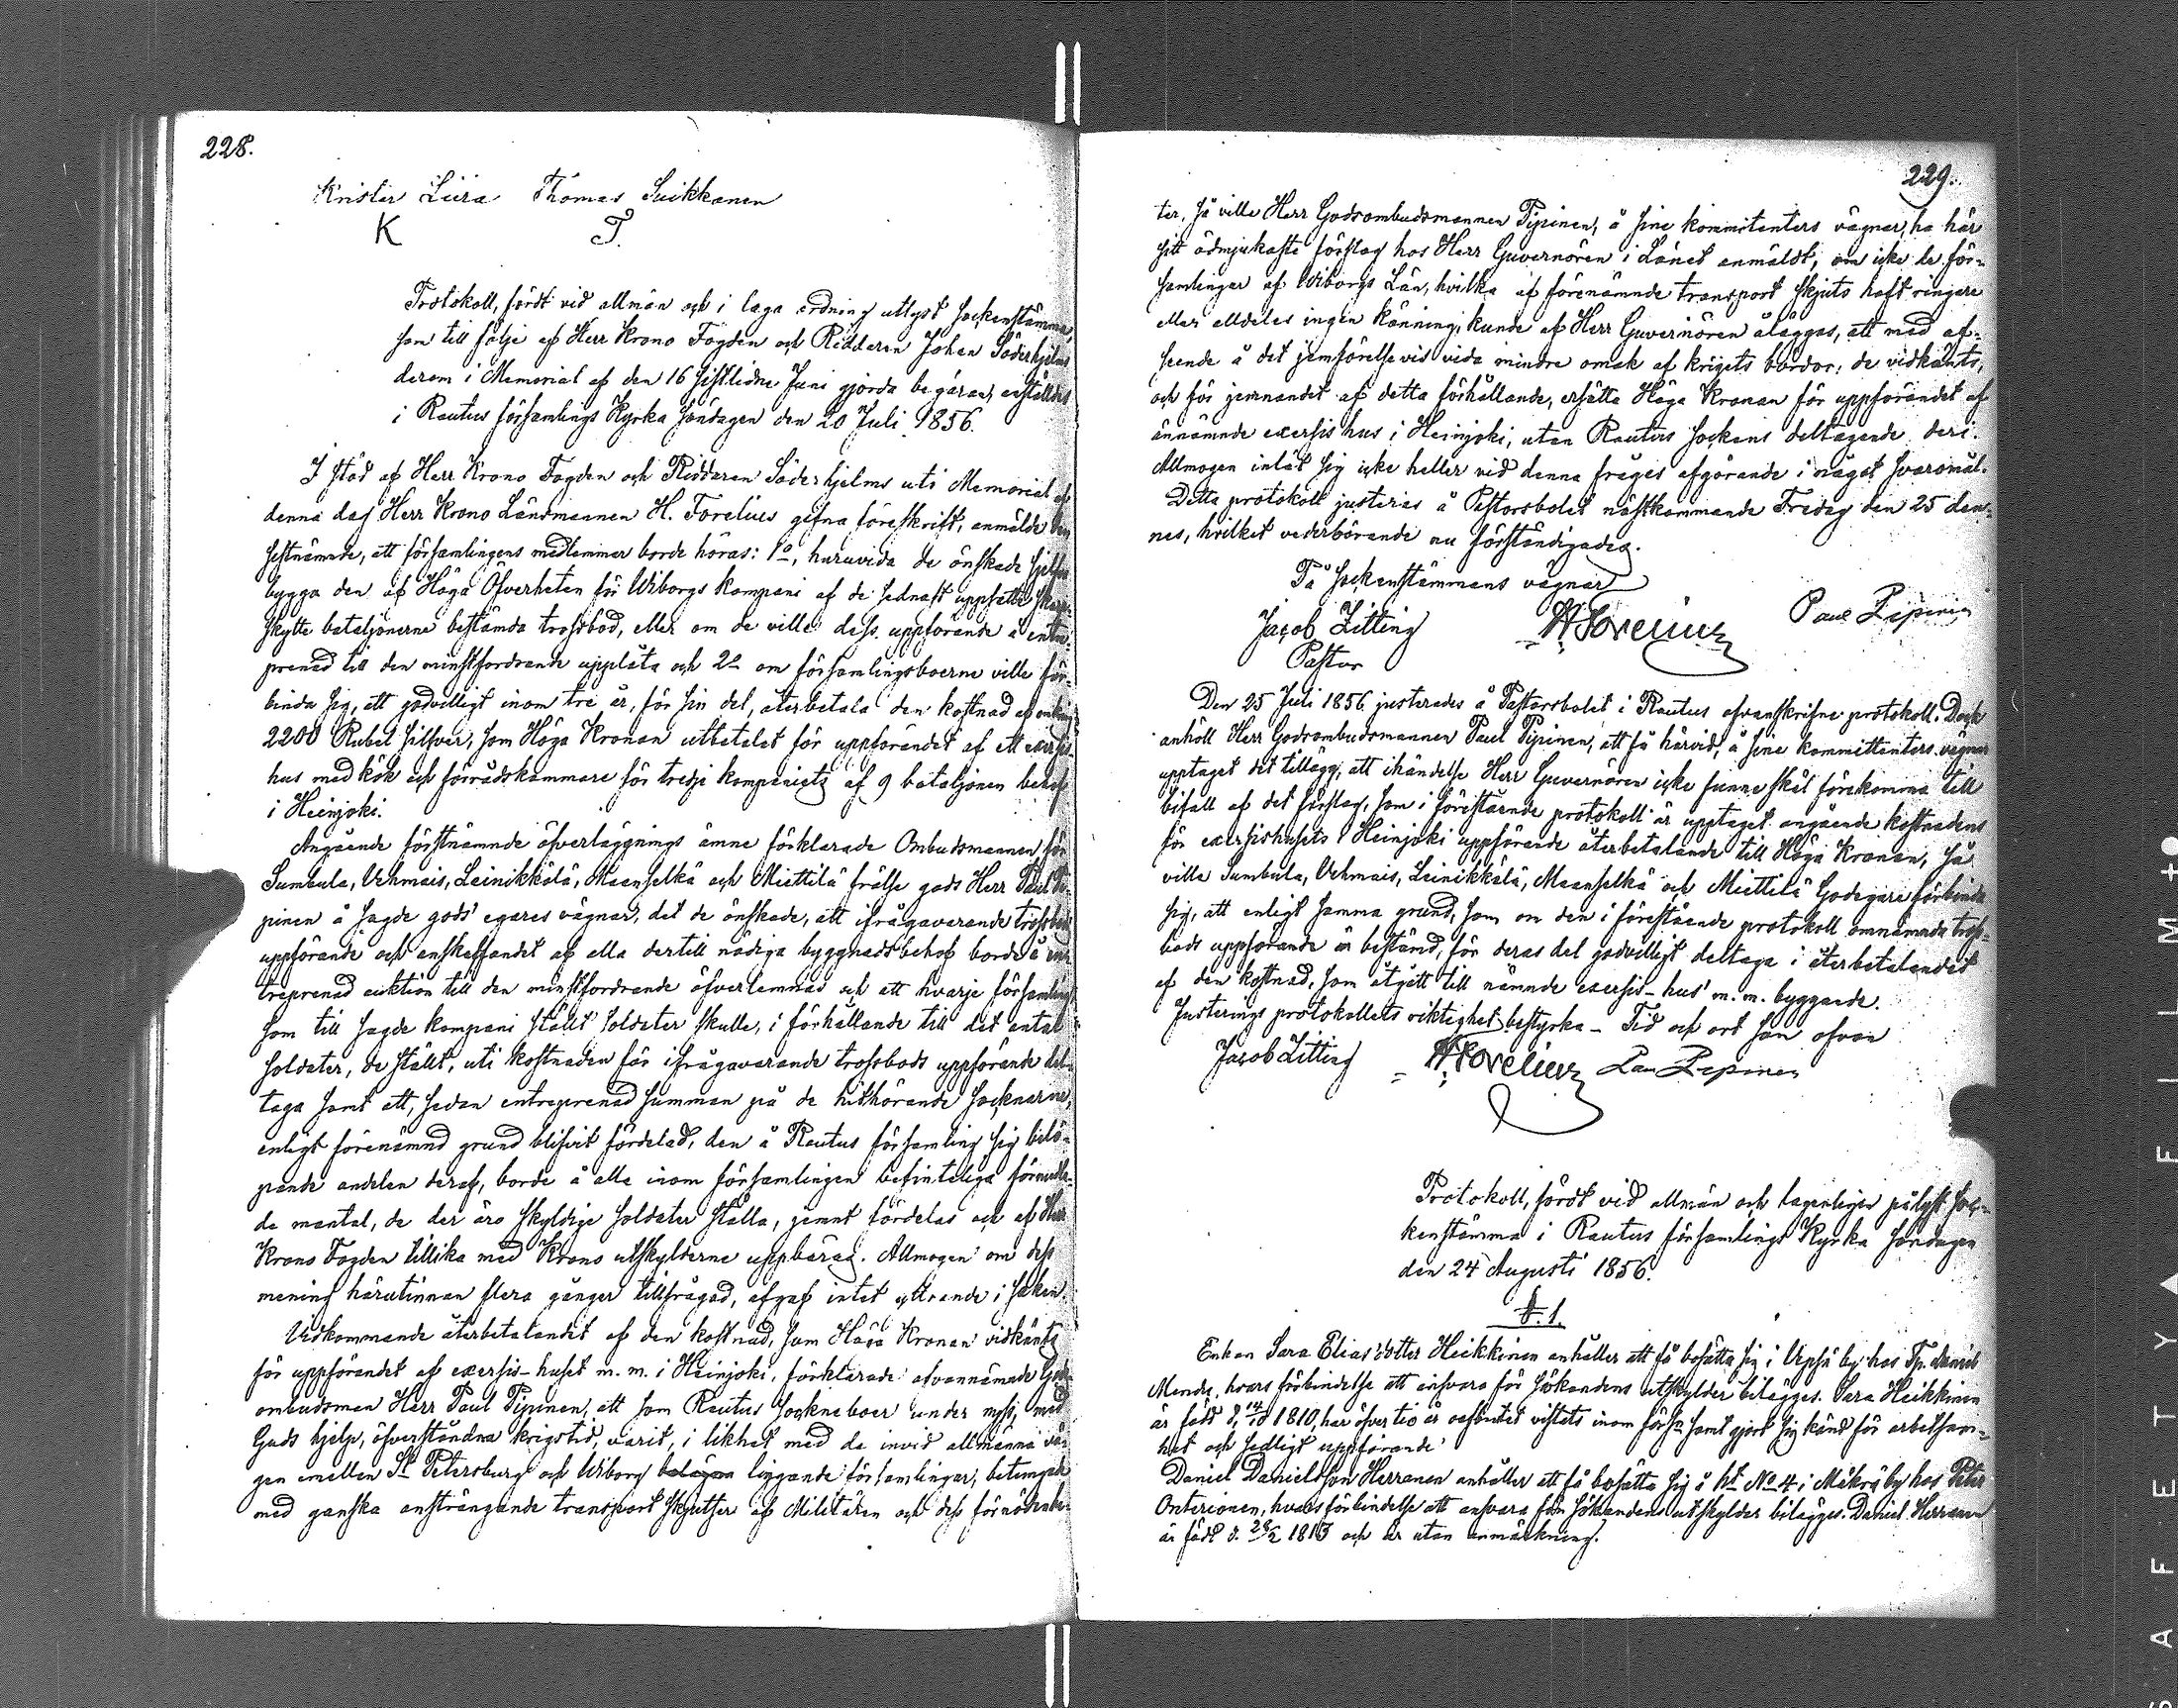 228.
Krister Liira Thomas Suikkanen
K T.
Protokoll, fördt vid allmän och i laga ordning utlyst sockenstämma,
som till följe af Herr Krono Fogden och Riddaren Johan Söderhjelms
derom i Memorial af den 16 sistlidne Juni gjorda begäran, anställdes
i Rautus församlings Kyrka söndagen den 20 Juli 1856.
I stöd af Herr Krono Fogden och Riddaren Söderhjelms uti Memorial af
denna dag Herr Krono Länsmannen H. Forelius gifna föreskrift, anmälde den
sistnämnde, att församlingens medlemmar borde höras: 1o, huruvida de önskade sjelfva
bygga den af Höga Öfverheten för Wiborgs kompani af de sednast uppsatte skarp-
skytte bataljonerne bestämda trossbod, eller om de ville dess uppförande å entre-
prenad till den minstfordrande upplåta och 2o om församlingsboerne ville för-
binda sig, att godvilligt inom tre år, för sin del, återbetala den kostnad af omkring
2200 Rubel silfver, som Höga Kronan utbetalat för uppförandet af ett exersis-
hus med kök och förrådskammare för tredje kompaniets af 9 bataljonen behof
i Heinjoki.
Angående förstnämnde öfverläggnings ämne förklarade Ombudsmannen för
Sumbula, Vehmais, Leinikkälä, Maanselkä och Miettilä frälse gods Herr Paul Pi-
pinen å sagde gods' egares vägnar, det de önskade, att ifrågavarande trossbods
uppförande och anskaffandet af alla dertill nödiga byggnadsbehof borde å en-
treprenad auktion till den minstfordrande öfverlemnas och att hvarje församling,
som till sagde kompani ställt soldater skulle, i förhållande till det antal
soldater, de ställt, uti kostnaden för ifrågavarande trossbods uppförande del-
taga samt att, sedan entreprenad summan på de hithörande socknarne,
enligt förenämnd grund blifvit fördelad, den å Rautus församling sig belö-
pande andelen deraf, borde å alla inom församlingen befinteliga förmedla-
de mantal, de der äro skyldige soldater ställa, jemnt fördelas och af Herr
Krono Fogden tillika med Krono utskylderne uppbäras. Allmogen om dess
mening härutinnan flera gånger tillfrågad, afgaf intet yttrande i saken.
Vidkommande återbetalandet af den kostnad, som Höga Kronan vidkänts
för uppförandet af exersis-huset m. m. i Heinjoki, förklarade ofvannämnde Gods-
ombudsman Herr Paul Pipinen, att som Rautus sockneboer under nyss, med
Guds hjelp, öfverståndna krigstid, varit, i likhet med de invid allmänna vä-
gen emellan St Petersburg och Wiborg belägna liggande församlingar, betungade
med ganska ansträngande transport skjutser af Militären och dess förnödenhe-
229.
ter, så ville Herr Godsombudsmannen Pipinen, å sine kommitenters vägnar, ha här
sitt ödmjukaste förslag hos Herr Guvernören i Länet anmäldt, om icke de för-
samlingar af Wiborgs Län, hvilka af förenämnde transport skjuts haft ringare
eller alldeles ingen känning, kunde af Herr Guvernören åläggas, att med af-
seende å det jemförelsevis vida mindre omak af krigets bördor, de vidkänts,
och för jemnandet af detta förhållande, ersätta Höga Kronan för uppförandet af
omnämnde exersis hus i Heinjoki, utan Rautus sockens deltagande deri.
Allmogen inlät sig icke heller vid denna frågas afgörande i något svaromål.
Detta protokoll justeras å Pastorsbolet nästkommande Fredag den 25 den-
nes, hvilket vederbörande nu förständigades.
På sockenstämmans vägnar
Jacob Zitting HForelius Paul Pipinen
Pastor
Den 25 Juli 1856 justerades å Pastorsbolet i Rautus ofvanskrifne protokoll. Dock
anhöll Herr Godsombudsmannen Paul Pipinen, att få härvid, å sine kommittenters vägnar
upptaget det tillägg, att ihändelse Herr Guvernören icke funne skäl förekomma till
bifall af det förslag, som i förestående protokoll är upptaget angående kostnadens
för exersishusets i Heinjoki uppförande återbetalande till Höga Kronan, så
ville Sumbula, Vehmais, Leinikkälä, Maanselkä och Miettilä Godsegare förbinda
sig, att enligt samma grund, som om den i förestående protokoll omnämnda tross-
bods uppförande är bestämd, för deras del godvilligt deltaga i återbetalandet
af den kostnad, som åtgått till nämnde exersis-hus' m. m. byggande.
Justerings protokollets riktighet bestyrka - Tid och ort som ofvan
Jacob Zitting HForelius Pau Pipinen
Protokoll, fördt vid allmän och lagenligen pålyst soc-
kenstämma i Rautus församlings Kyrka söndagen
den 24 Augusti 1856.
§. 1.
Enkan Sara Eliasdotter Heikkinen anhåller att få bosätta sig i Vepsä by hos Tp. Daniel
hvars förbindelse att ansvara för sökandens utskylder bilägges. Sara Heikkinen
är född d. 1810, har öfver tio år oafbrutet vistats inom förs:n samt gjort sig känd för arbetsam-
het och sedligt uppförande.
Daniel Danielsson Herranen anhåller att få bosätta sig å ht No 4 i Mäkrä by hos Peter
Onterionen, hvars förbindelse att ansvara för sökandens utskylder bilägges. Daniel Herranen
är född d. 28/2 1813 och är utan anmärkning.
SAFETY FILM